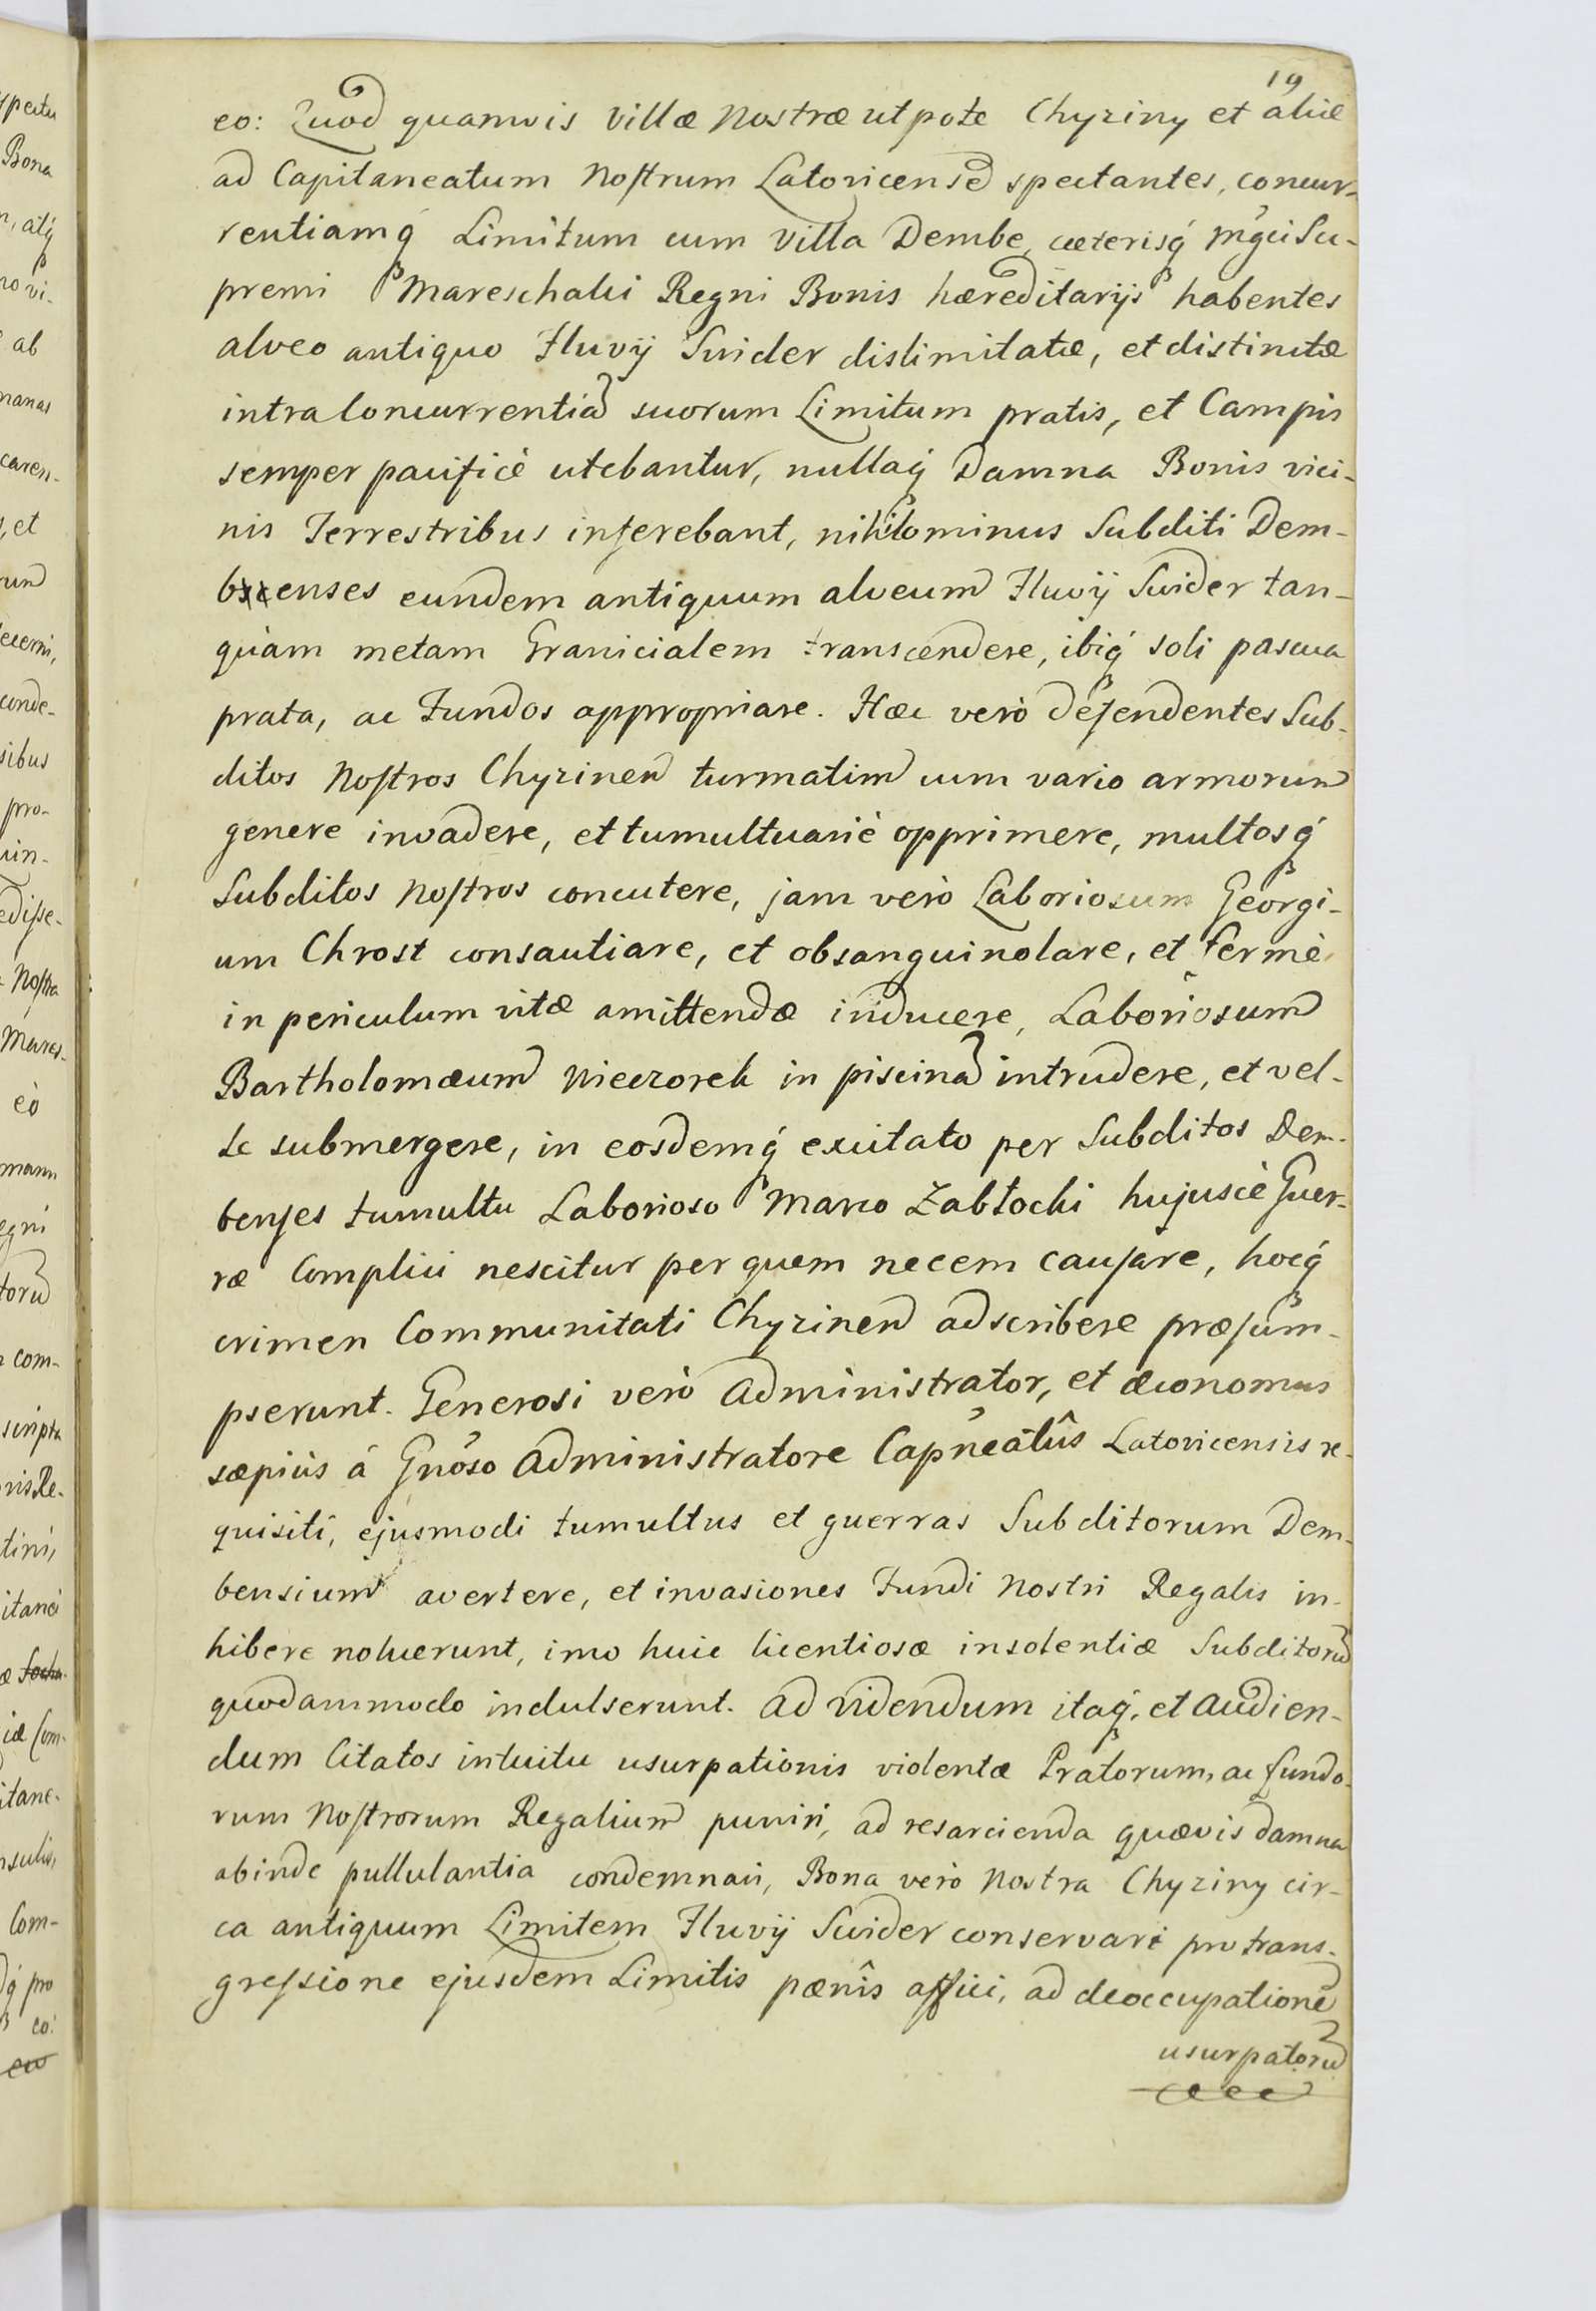 19
eo: Quod quamvis Villæ Nostræ utpote Chyziny et aliæ
ad Capitaneatum Nostrum Latovicense spectantes, concur-
rentiamq́ Limitum cum Villa Dembe, cæterisq́ Mg̃ci Su-
premi Mareschalci Regni Bonis hæreditarijs habentes
alveo antiquo Fluvij Swider dislimitatæ, et distinctæ
intra Concurrentiã suorum Limitum pratis, et Campis
semper pacificè utebantur, nullaq́ Damna Bonis vici-
nis Terrestribus inferebant, nihilominus Subditi Dem-
benses eundem antiquum alveum Fluvij Swider tan-
quàm metam Granicialem transcendere, ibiq́ soli pascua
prata, ac Fundos appropriare. Hæc verò defendentes Sub-
ditos Nostros Chyzinen turmatim cum vario armorum
genere invadere, et tumultuariè opprimere, multosq́
Subditos Nostros concutere, jam verò Laboriosum Georgi-
um Chrost consautiare, et obsanguinolare, et fermè
in periculum vitæ amittendæ inducere, Laboriosum
Bartholomæum Wieczorek in piscinã intrudere, et vel-
le submergere, in eosdemq́ excitato per Subditos Dem-
benses tumultu Laborioso Marco Zabłocki hujuscè Guer-
ræ Complici nescitur per quem necem causare, hocq́
crimen Communitati Chyzinen adscribere præsum-
pserunt. Generosi verò Administrator, et œconomus
sæpiùs á Gñoso Administratore Capñeatûs Latovicensis re-
quisiti, ejusmodi tumultus et guerras Subditorum Dem-
bensium avertere, et invasiones Fundi Nostri Regalis in-
hibere noluerunt, imo huic licentiosæ insolentiæ Subditorũ
quodammodo indulserunt. Ad videndum itaq́. et Audien-
dum Citatos intuitu usurpationis violentæ Pratorum, ac fundo-
rum Nostrorum Regalium puniri, ad resarcienda quævis damna
abinde pullulantia condemnari, Bona verò Nostra Chyziny cir-
ca antiquum Limitem Fluvij Swider conservari pro trans-
gressione ejusdem Limitis pœnîs affici, ad deoccupationẽ
usurpatorũ